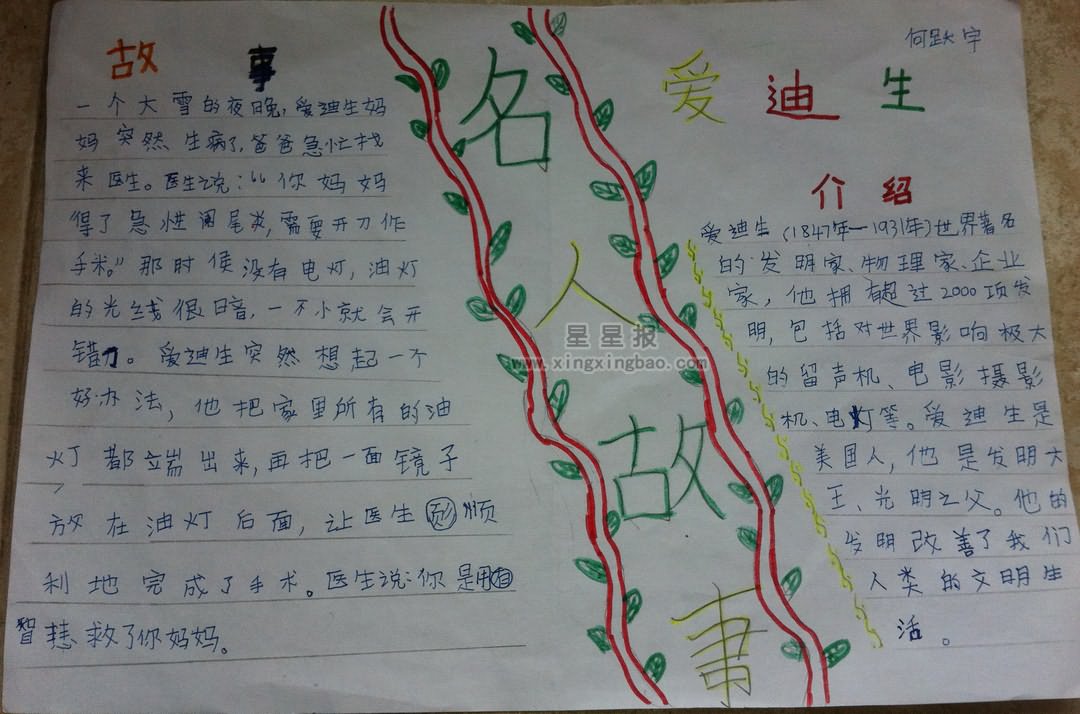 故事
一个大雪的夜晚，爱迪生妈
妈突然生病了，爸爸急忙找
来医生。医生说：“你妈妈
得了急性阑尾炎，需要开刀作
手术。”那时候没有电灯，油灯
的光线很暗，一不小就会开
错刀。爱迪生突然想起一个
好办法，他把家里所有的油
灯都端出来，再把一面镜子
放在油灯后面，让医生顺
利地完成了手术。医生说：你是用自
智慧救了你妈妈。
名人故事
星星报
www.xingxingbao.com
何跃宇
爱迪生
介绍
爱迪生（1847年—1931年）世界著名
的发明家、物理家、企业
家，他拥有超过2000项发
明，包括对世界影响极大
的留声机、电影摄影
机、电灯等。爱迪生是
美国人，他是发明大
王、光明之父。他的
发明改善了我们
人类的文明生
活。